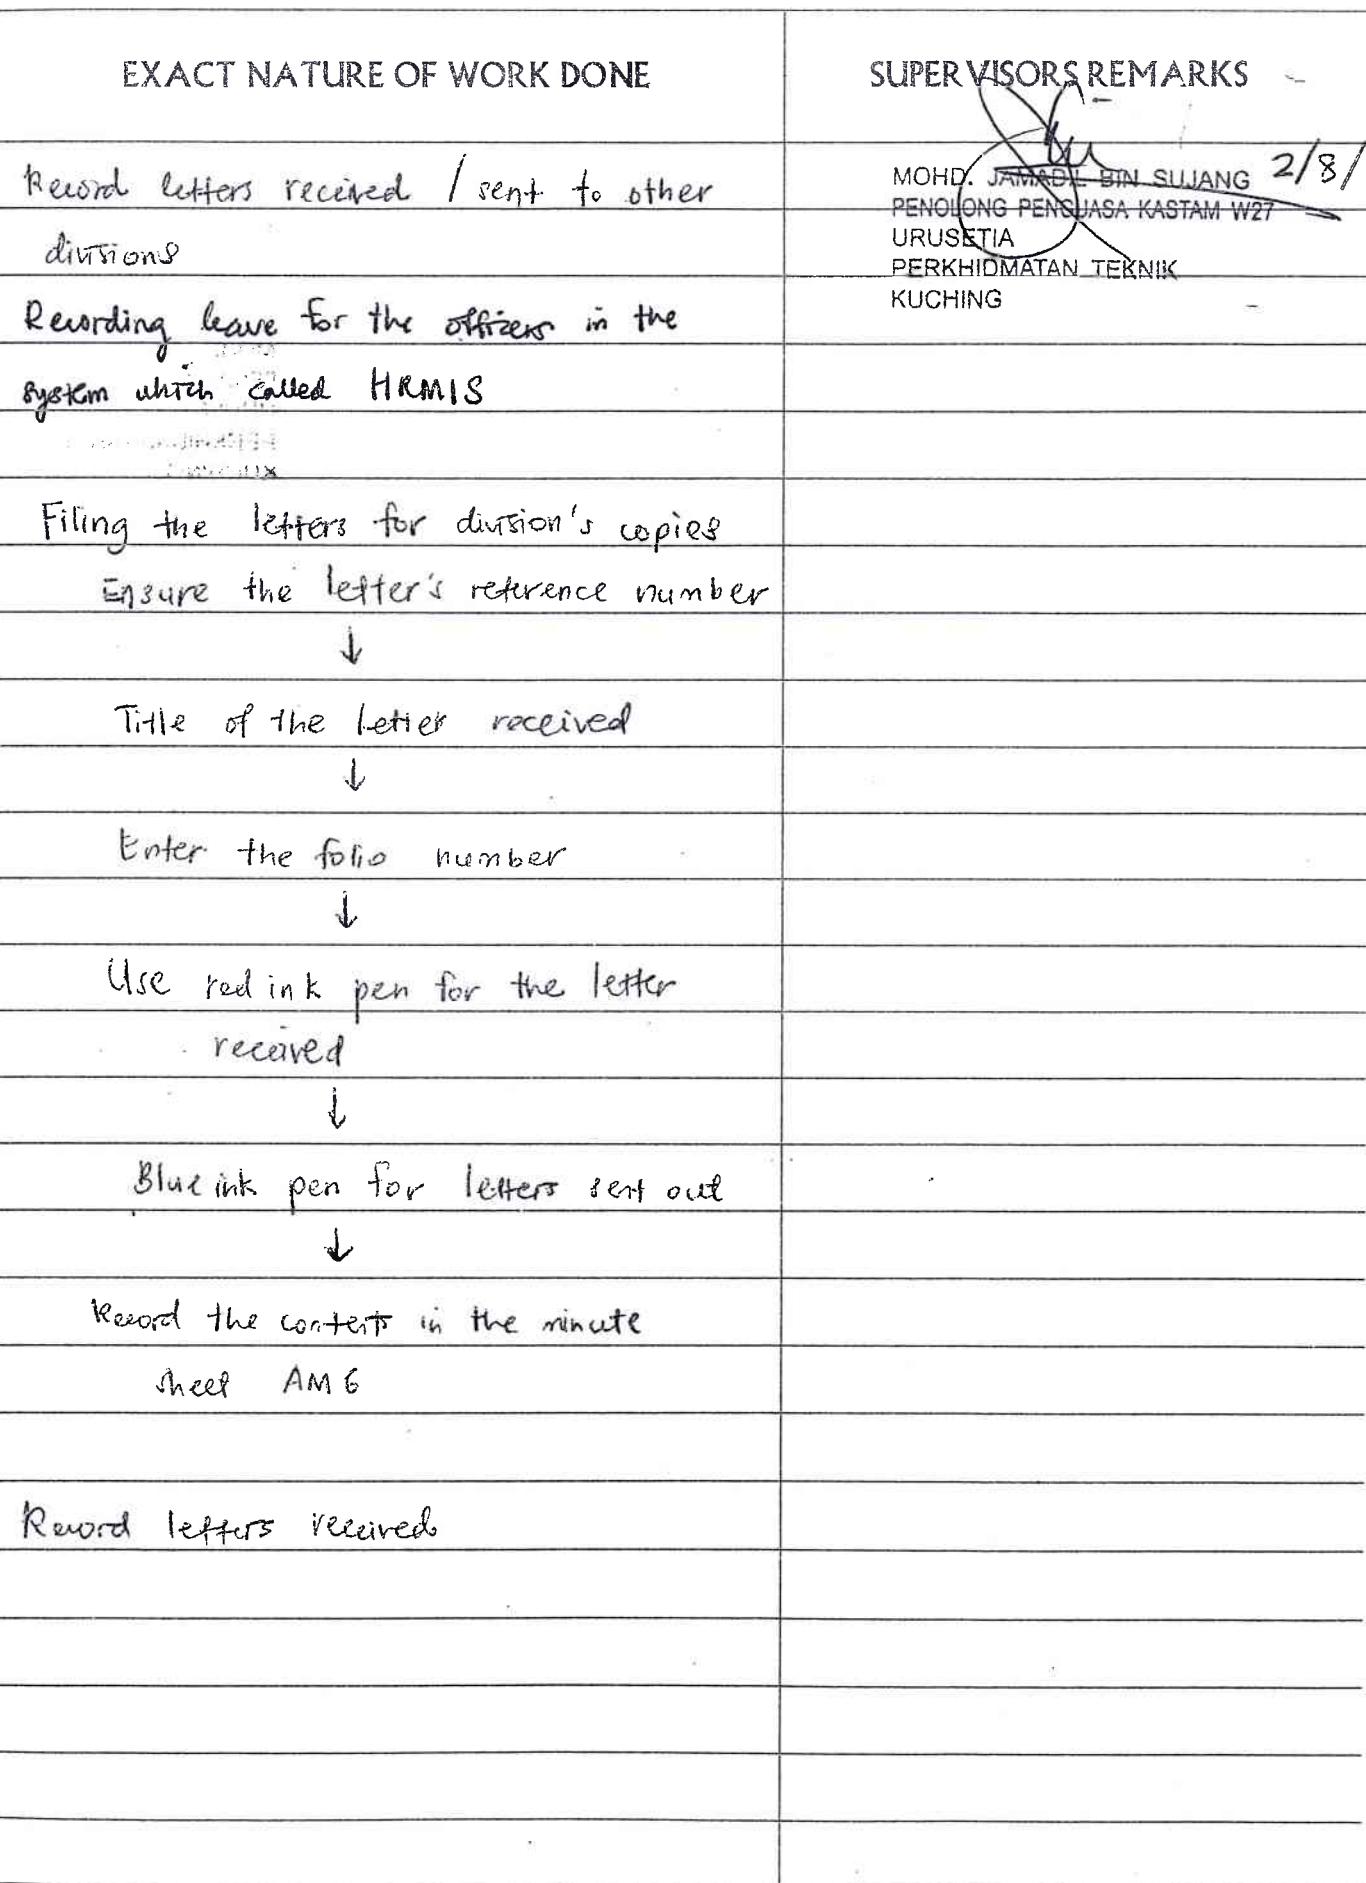 EXACT NATURE OF WORK DONE
SUPERVISORS REMARKS
Record letters received / sent to other
divisions
Recording leave for the officers in the
system which called HRMIS
Filing the letters for division's copies
Ensure the letter's reference number
↓
Title of the letter received
↓
Enter the folio number
↓
Use red ink pen for the letter
received
↓
Blue ink pen for letters sent out
↓
Record the contents in the minute
sheet AM 6
Record letters received
2/8/
MOHD. JAMADIL BIN SUJANG
PENOLONG PENGUASA KASTAM W27
URUSETIA
PERKHIDMATAN TEKNIK
KUCHING